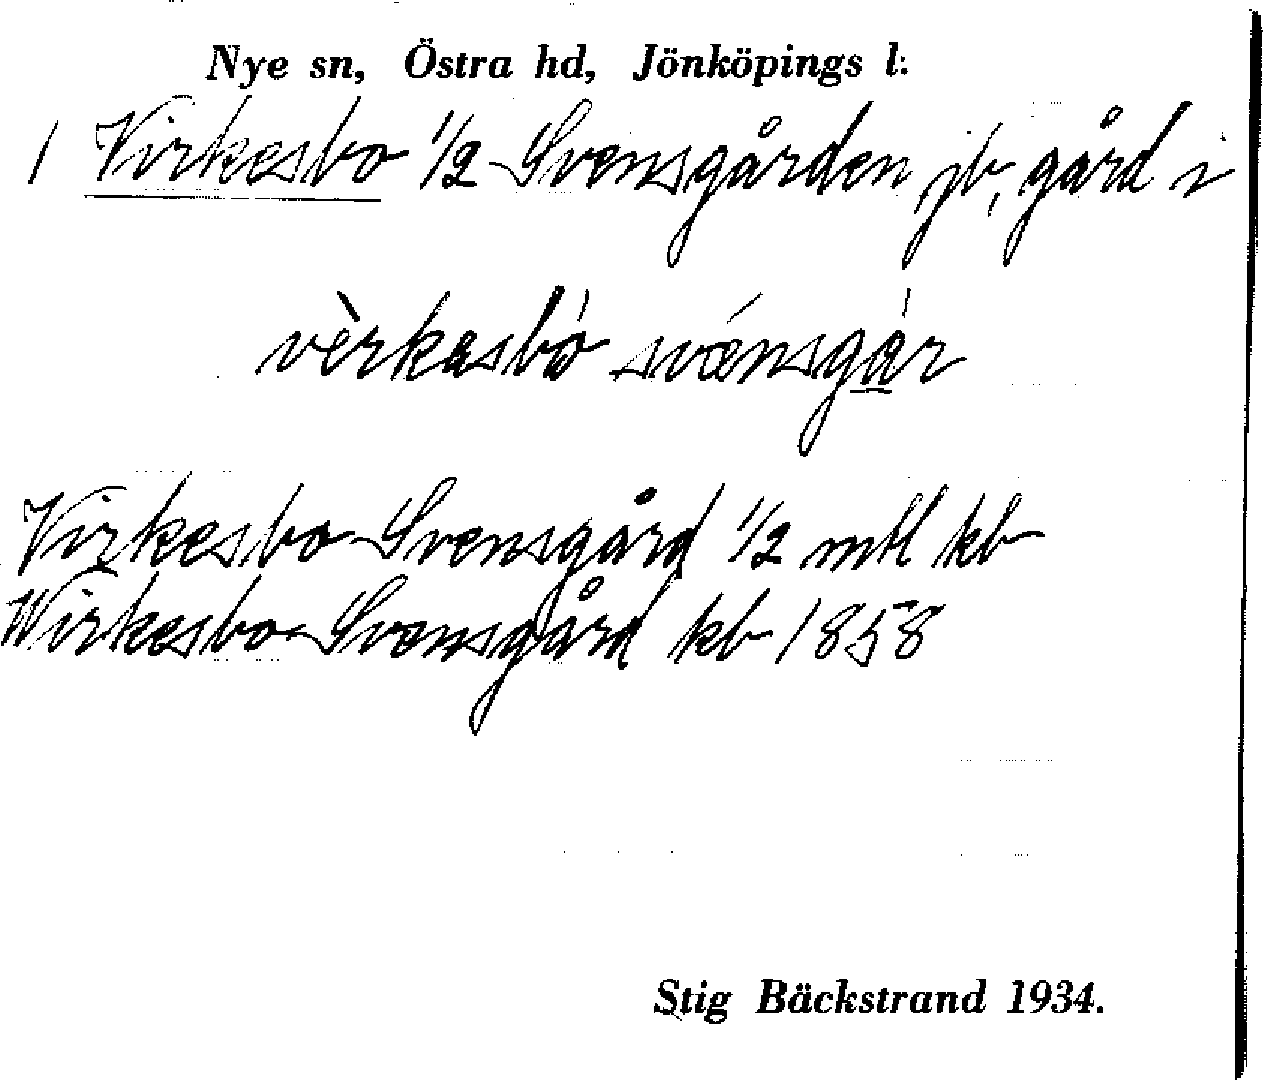 Nye sn, Östra hd, Jönköpings l:
1 Virkesbo 1/2 Svensgården jb, gård i
vèrkasbó svǽnsgár
Virkesbo Svensgård 1/2 mtl kb
Wirkesbo Svensgård kb 1858
Stig Bäckstrand 1934.